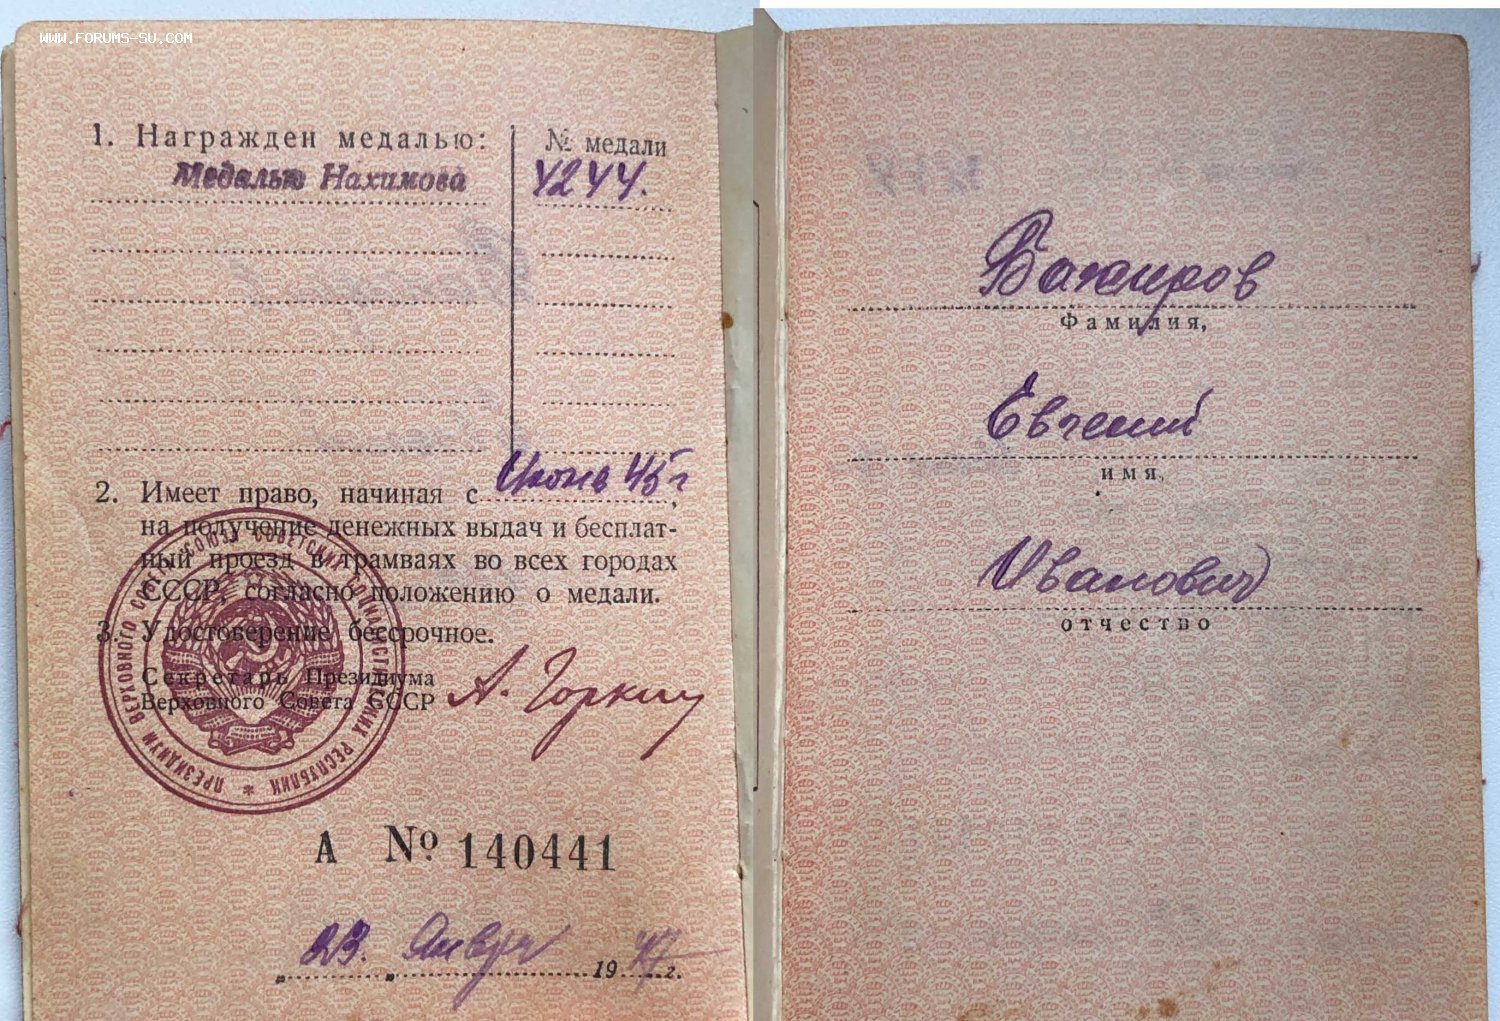 WWW.FORUMS-SU.COM
1. Награжден медалью:
№ медали
Медалью Нахимова
4244.
2. Имеет право, начиная с Июня 45 г,
на получение денежных выдач и бесплат-
ный проезд в трамваях во всех городах
СССР, согласно положению о медали.
3. Удостоверение бессрочное.
Секретарь Президиума
Верховного Совета СССР А. Горкин
ПРЕЗИДИУМ ВЕРХОВНОГО СОВЕТА СОЮЗА СОВЕТСКИХ СОЦИАЛИСТИЧЕСКИХ РЕСПУБЛИК
А № 140441
„23. „ Января 1947 г.
Бажиров
Фамилия,
Евгений
имя,
Иванович
отчество